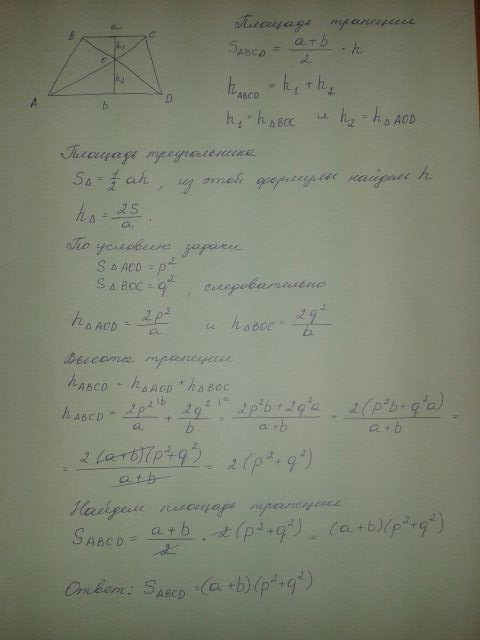 Площадь трапеции
S_ABCD = (a+b)/2 · h
B a C
h₁
o
h₂
A b D
h_ABCD = h₁ + h₂
h₁ = h_ΔBOC и h₂ = h_ΔAOD
Площадь треугольника
S_Δ = 1/2 ah, из этой формулы найдем h
h_Δ = 2S/a.
По условию задачи
S_ΔAOD = p²
S_ΔBOC = q², следовательно
h_ΔAOD = 2p²/a и h_ΔBOC = 2q²/b
Высота трапеции
h_ABCD = h_ΔAOD + h_ΔBOC
h_ABCD = 2p² \b/a + 2q² \a/b = (2p²b + 2q²a)/(a+b) = 2(p²b + q²a)/(a+b) =
= 2(a+b)(p²+q²)/(a+b) = 2(p²+q²)
Найдем площадь трапеции
S_ABCD = (a+b)/2 · 2(p²+q²) = (a+b)(p²+q²)
Ответ: S_ABCD = (a+b)(p²+q²)